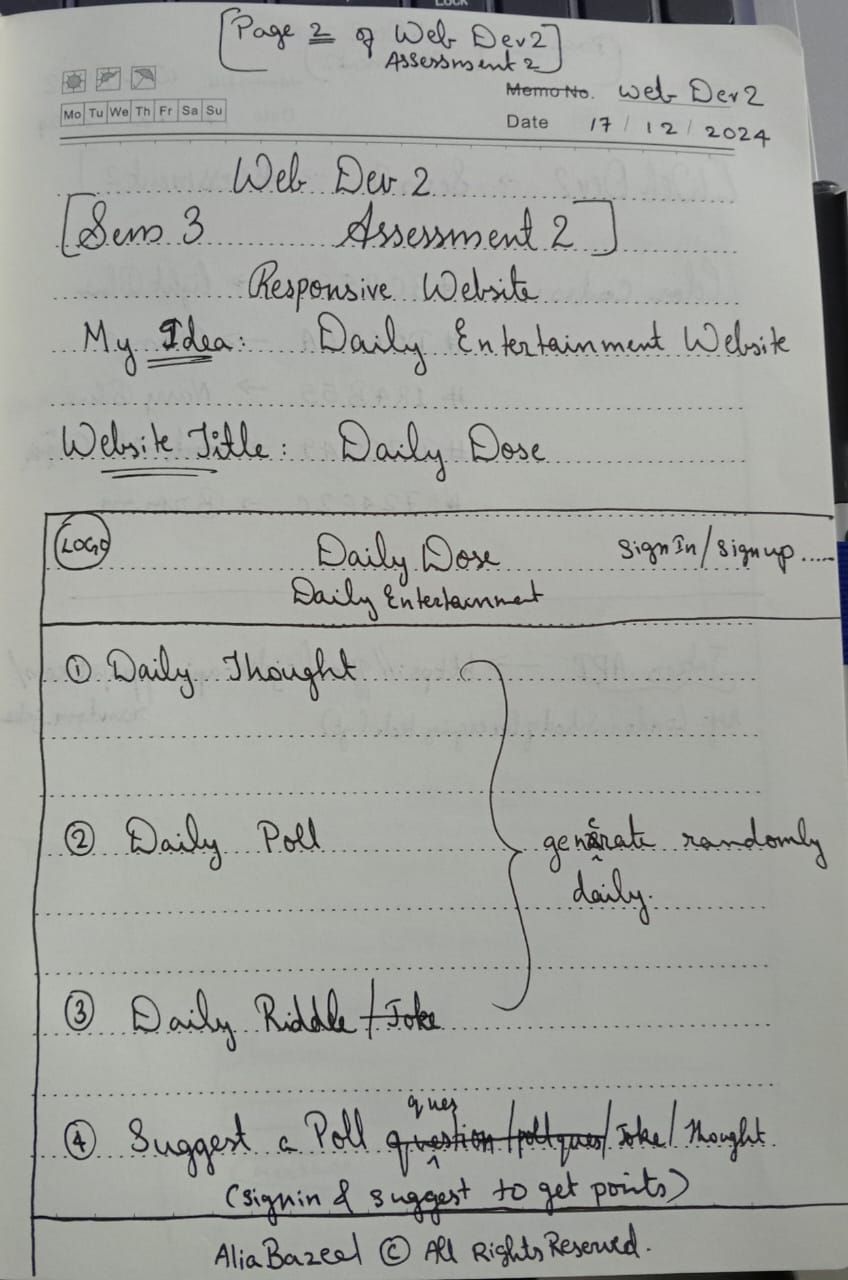 [Page 2 of Web Dev2]
Assessment 2
Mo Tu We Th Fr Sa Su
Memo No. Web Dev 2
Date 17 / 12 / 2024
Web Dev 2
[Sem 3 Assessment 2]
Responsive Website
My Idea: Daily Entertainment Website
Website Title: Daily Dose
LOGO Daily Dose Sign In/Sign up.....
Daily Entertainment
① Daily Thought
② Daily Poll
generate randomly
daily.
③ Daily Riddle/Joke
ques
④ Suggest a Poll question/poll ques/Joke/Thought
(signin & suggest to get points)
Alia Bazeel © All Rights Reserved.